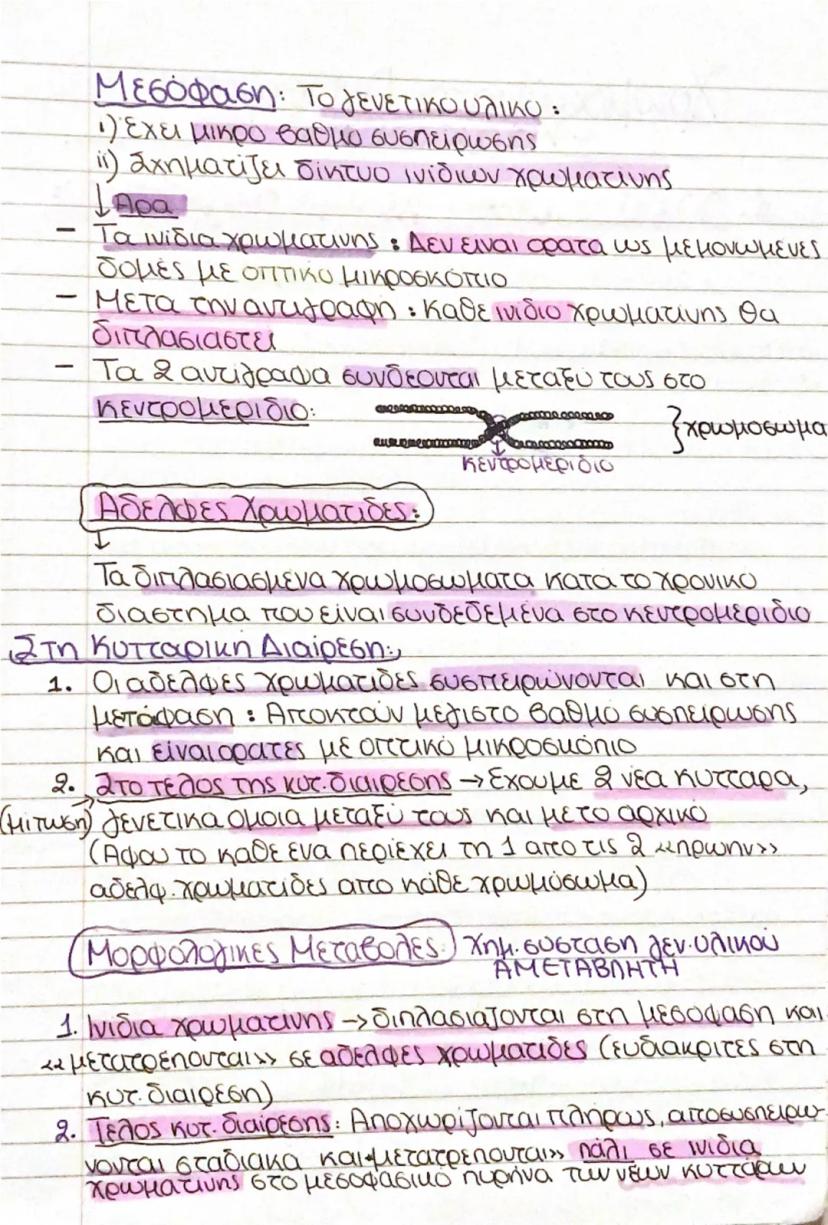 Μεσόφαση: Το γενετικο υλικο:
i) Έχει μικρο βαθμο συσπειρωσης
ii) Σχηματίζει δίκτυο ινίδιων χρωματινης
↓ Άρα
– Τα ινίδια χρωματινης: Δεν ειναι ορατα ως μεμονωμενες
δομές με οπτικο μικροσκόπιο
– Μετα την αντιγραφη: καθε ινιδιο χρωματινης θα
διπλασιαστει
– Τα 2 αντιγραφα συνδεονται μεταξύ τους στο
κεντρομεριδιο:
} χρωμοσωμα
κεντρομεριδιο
Αδελφες Χρωματιδες:
↓
Τα διπλασιασμενα χρωμοσωματα κατα το χρονικο
διαστημα που είναι συνδεδεμένα στο κεντρομεριδιο
Στη Κυτταρικη Διαίρεση:
1. Οι αδελφες χρωματιδες συσπειρώνονται και στη
μετάφαση: Αποκτούν μεγιστο βαθμό συσπειρωσης
και είναι ορατες με οπτικό μικροσκόπιο
2. Στο τέλος της κυτ. διαιρεσης → Έχουμε 2 νέα κυτταρα,
(μιτωση) γενετικα ομοια μεταξύ τους και με το αρχικό
(Αφου το καθε ενα περιέχει τη 1 απο τις 2 «πρωην»
αδελφ. χρωματιδες απο κάθε χρωμόσωμα)
Μορφολογικες Μεταβολες: χημ. συσταση γεν. υλικού
ΑΜΕΤΑΒΛΗΤΗ
1. Ινιδια χρωματινης → διπλασιαζονται στη μεσοφαση και
«μετατρεπονται» σε αδελφες χρωματιδες (ευδιακριτες στη
κυτ. διαιρεση)
2. Τελος κυτ. διαιρεσης: Αποχωρίζονται πλήρως, αποσυσπειρω-
νονται σταδιακα και «μετατρεπονται» πάλι σε ινιδια
χρωματινης στο μεσοφασικό πυρήνα των νέων κυττάρων